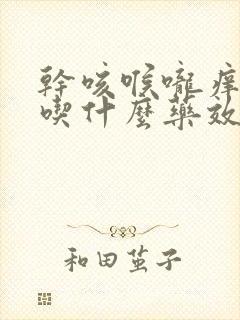 幹咳喉嚨癢
喫什麼藥效
和田茧子